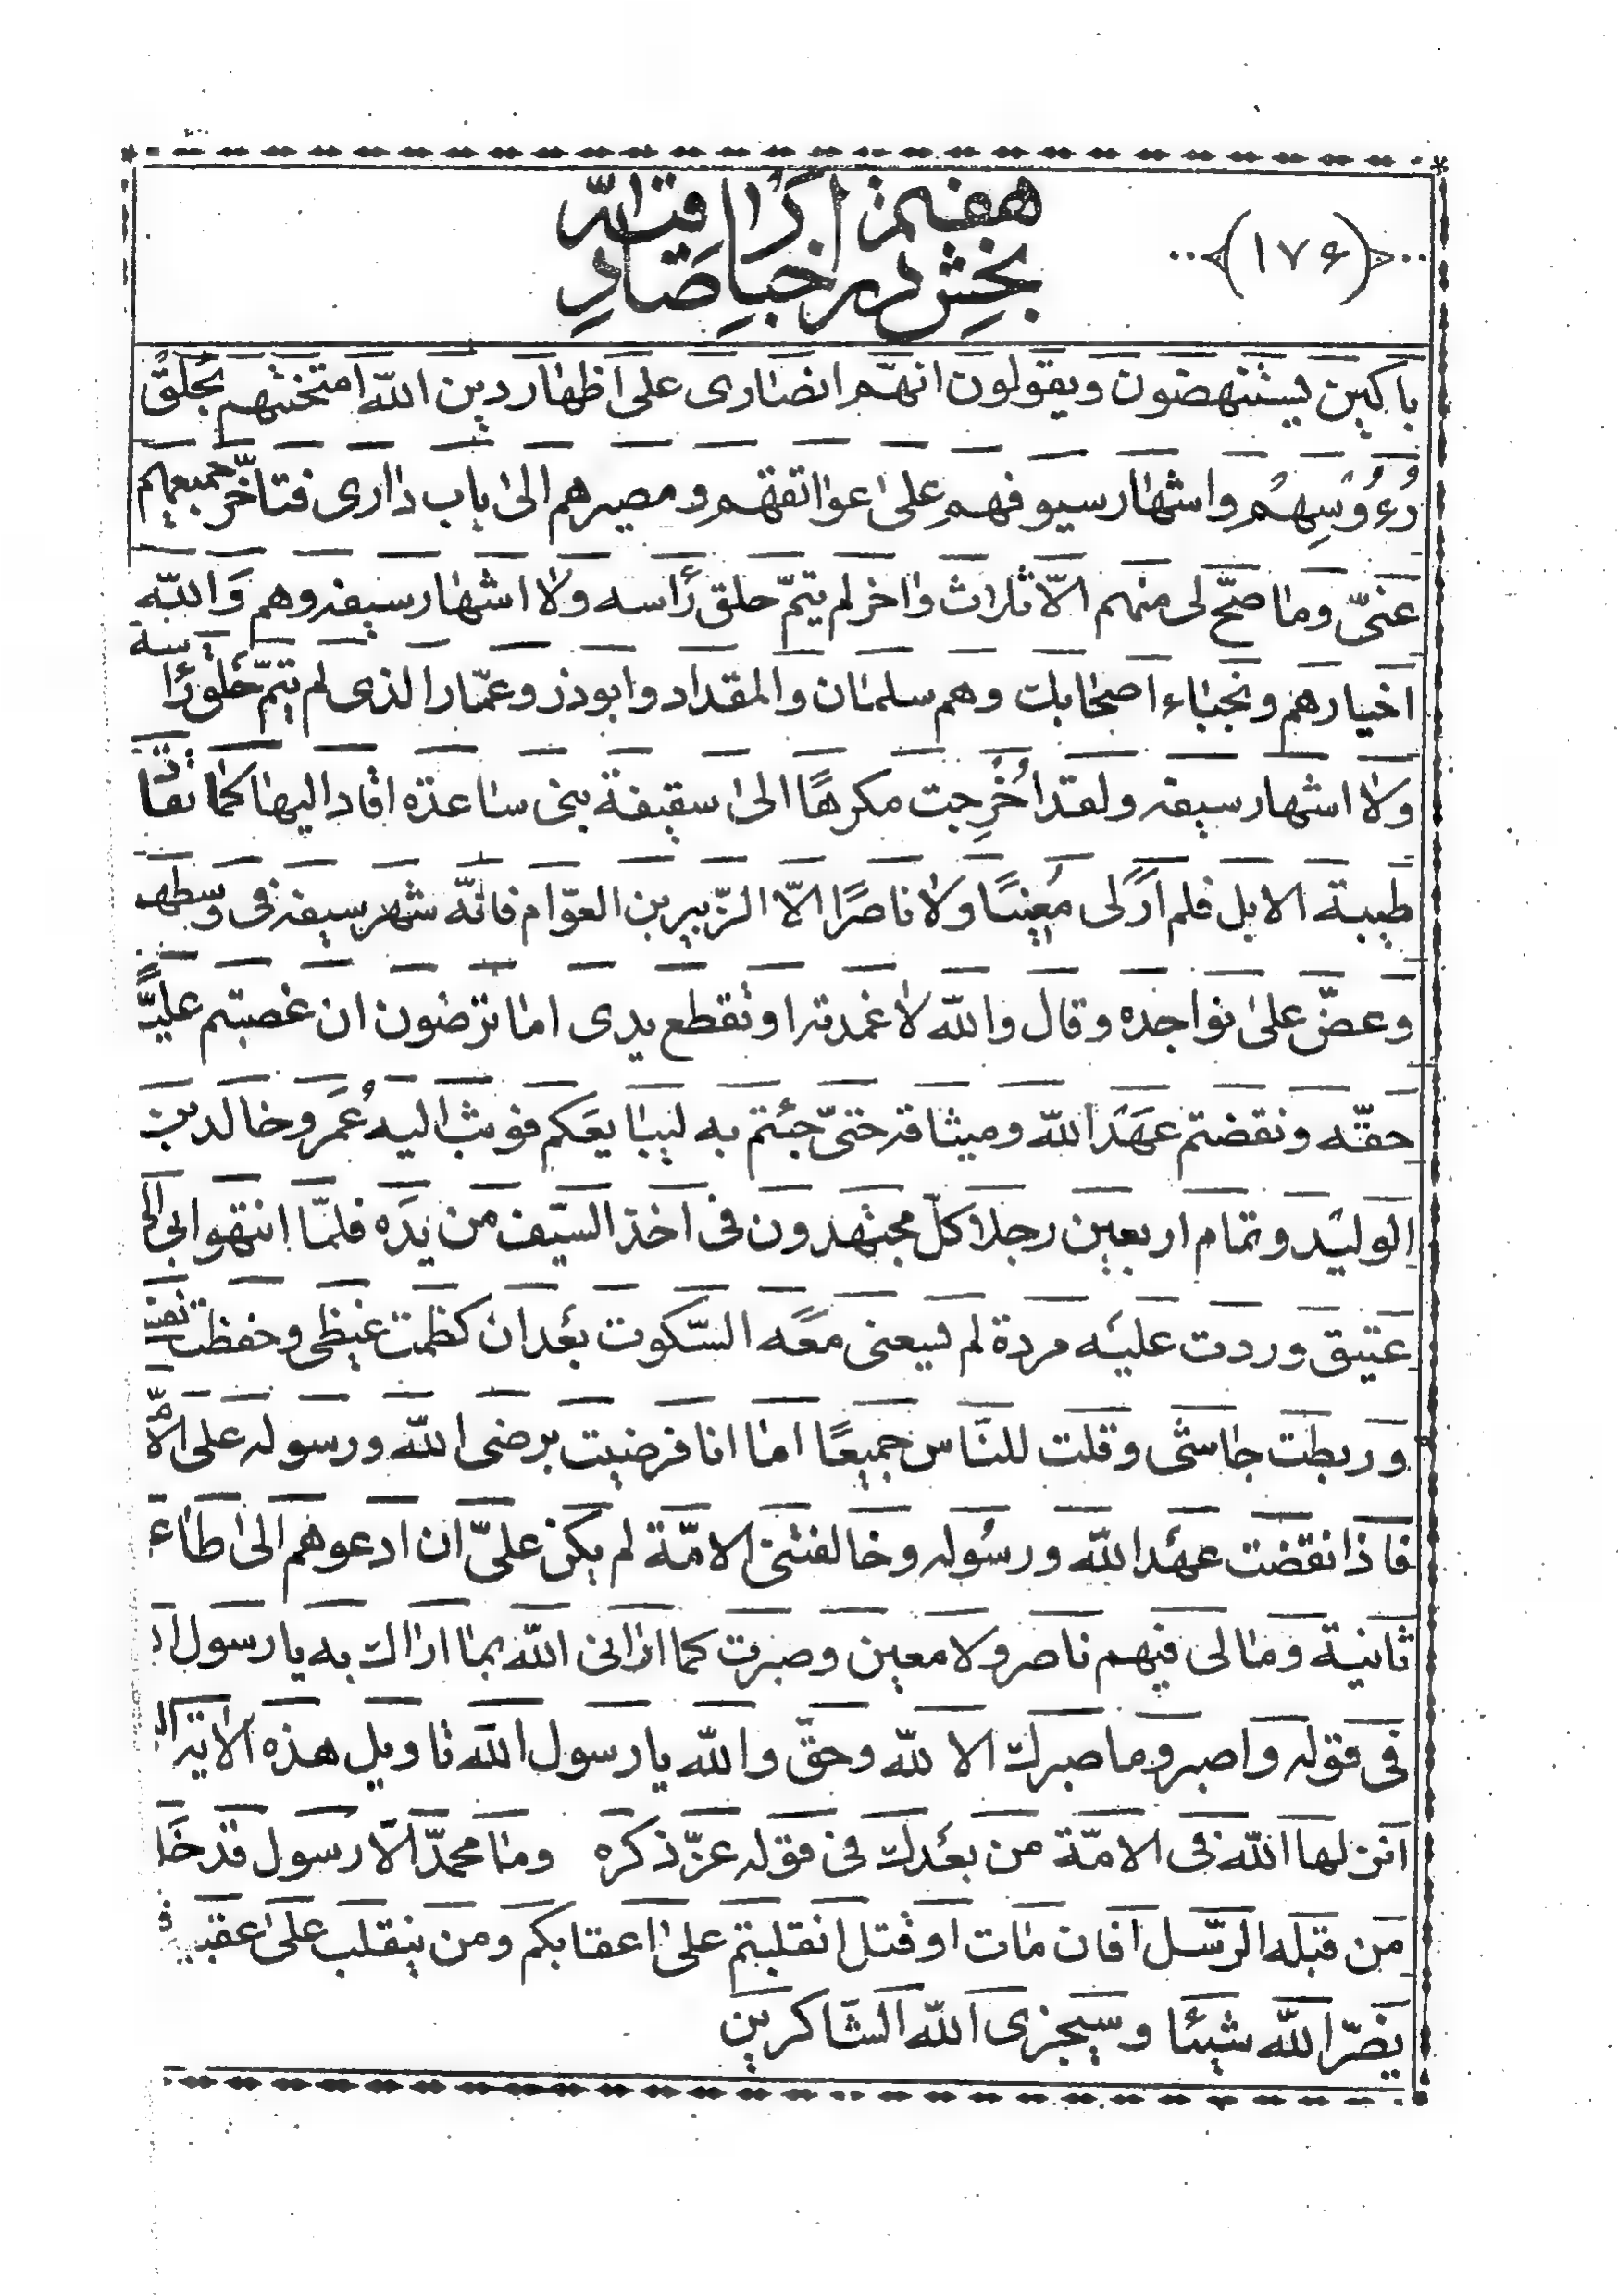 (١٧۶)
بخش هفتم در اخبار صادقيّه
باكين يستنهضون ويقولون انهّم انصٰارى على اظهٰار دين اللّه امتحنتهم بحَلقُ
رُءُوُسِهِمُ واشهٰار سيوفهمِ علىٰ عواتقهم ومصيرهم الىٰ باب دٰارى فتاخّر جميعهم
عنىّ ومٰا صحّ لى منهم الاّ ثلاث وٰاخر لم يتمّ حلق رأسه ولاٰ اشهٰار سيفه وهم وَاللّه
اخيارهم ونجبٰاء اصحٰابك وهم سلمٰان والمقداد وابوذر وعمّار الذى لم يتمّ حَلْق رأسه
ولاٰ اشهار سيفه ولقد اُخُرِجت مكرهًا الىٰ سقيفة بنى سٰاعدة اقٰاد اليهٰا كمٰا تقاد
طيبة الابل فلم ارَ لى مُعينًا ولاٰ ناصرًا الاّ الزّبير بن العوّام فانّه شهر سيفه فى وسطهم
وعضّ علىٰ نواجده وقال واللّه لاٰ غمدته او تقطع يدى امٰا ترضون ان غصبتم عليًّا
حقّه ونقضتم عهَدَ اللّه وميثاقه حتىّ جئتم به ليبٰايعَكم فوثب اليه عُمَر وخالد بن
الوليَد وتمام اربعين رجلا كلّ مجتهدون فى اخذ السّيف من يَدَه فلمّا انتهوا بى الى
عتيق وردت عليَه مردة لم يسعنى معَه السّكوت بعَد ان كظمت غيظى وحفظت نفسى
وربطت جٰاشى وقلت للنّاس جميعًا امٰا انا فرضيت برضى اللّه ورسوله على الامّة
فاذٰا نقضت عهَد اللّه ورسُوله وخالفتنى الامّة لم يكن علىّ ان ادعوهم الىٰ طٰاء
ثانية ومٰا لى فيهم ناصر ولا معين وصبرت كما ارٰانى اللّه بمٰا ارٰاك به يا رسول
فى قوله واصبر وما صبرك الا للّه وحقّ واللّه يا رسول اللّه تاويل هذه الاٰية
انزلها اللّه فى الامّة من بعَدك فى قوله عزّ ذكره ومٰا محمدّ الاّ رسول قد خَلا
من قبله الرّسل افان مٰات او قتل انقلبتم علىٰ اعقابكم ومن ينقلب علىٰ عقبيه
يضرّ اللّه شيئا وسيجزى اللّه الشّاكرين